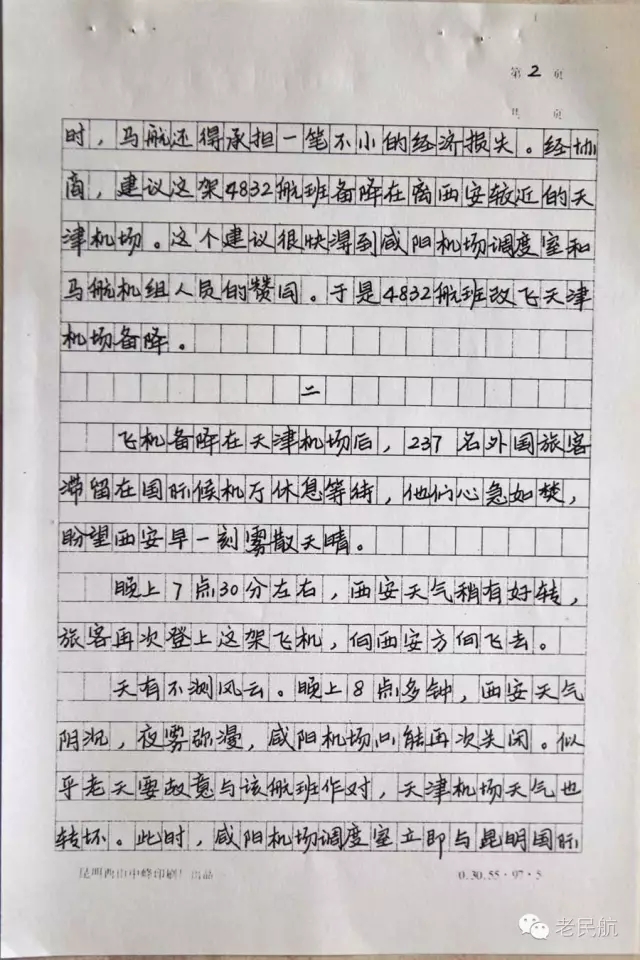 第2页
共 页
时，马航还得承担一笔不小的经济损失。经协
商，建议这架4832航班备降在离西安较近的天
津机场。这个建议很快得到咸阳机场调度室和
马航机组人员的赞同。于是4832航班改飞天津
机场备降。
二
飞机备降在天津机场后，237名外国旅客
滞留在国际候机厅休息等待，他们心急如焚，
盼望西安早一刻雾散天晴。
晚上7点30分左右，西安天气稍有好转，
旅客再次登上这架飞机，向西安方向飞去。
天有不测风云。晚上8点多钟，西安天气
阴沉，夜雾弥漫，咸阳机场只能再次关闭。似
乎老天要故意与该航班作对，天津机场天气也
转坏。此时，咸阳机场调度室立即与昆明国际
昆明西山中峰印刷厂出品
0.30.55·97·5
老民航